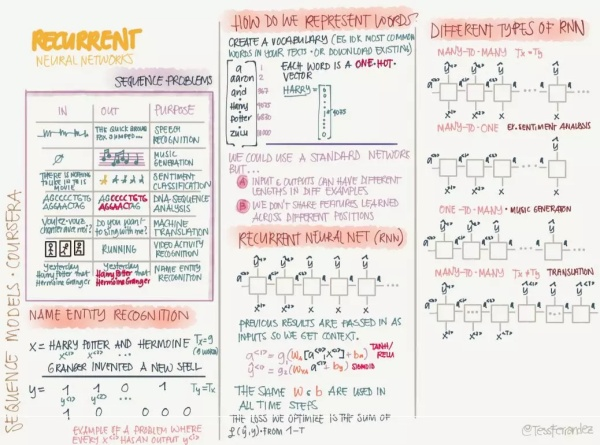 RECURRENT
NEURAL NETWORKS
SEQUENCE PROBLEMS
IN OUT PURPOSE
THE QUICK BROWN FOX JUMPED... SPEECH RECOGNITION
Ø MUSIC GENERATION
THERE IS NOTHING TO LIKE IN THIS MOVIE SENTIMENT CLASSIFICATION
AGCCCCTGTG AGGAACTAG AGCCCCTGTG AGGAACTAG DNA SEQUENCE ANALYSIS
Voulez-vous chanter avec moi? Do you want to sing with me? MACHINE TRANSLATION
RUNNING VIDEO ACTIVITY RECOGNITION
Yesterday Harry Potter met Hermione Granger Yesterday Harry Potter met Hermione Granger NAME ENTITY RECOGNITION
NAME ENTITY RECOGNITION
X = HARRY POTTER AND HERMOINE
Tx=9
(9 WORDS)
x<1> x<2> x<3> ...
GRANGER INVENTED A NEW SPELL
y= 1 1 0 1 Ty=Tx
y<1> y<2> ...
1 0 0 0 0
EXAMPLE OF A PROBLEM WHERE
EVERY X<i> HAS AN OUTPUT y<i>
SEQUENCE MODELS · COURSERA
HOW DO WE REPRESENT WORDS?
CREATE A VOCABULARY (EG 10K MOST COMMON
WORDS IN YOUR TEXTS · OR DOWNLOAD EXISTING)
a 1
aaron 2
and 367
Harry 4075
Potter 6830
zulu 10000
EACH WORD IS A ONE-HOT-
VECTOR
HARRY=
4075
WE COULD USE A STANDARD NETWORK
BUT...
A INPUT & OUTPUTS CAN HAVE DIFFERENT
LENGTHS IN DIFF EXAMPLES
B WE DON'T SHARE FEATURES LEARNED
ACROSS DIFFERENT POSITIONS
RECURRENT NEURAL NET (RNN)
PREVIOUS RESULTS ARE PASSED IN AS
INPUTS SO WE GET CONTEXT.
TANH/
RELU
SIGMOID
THE SAME W & b ARE USED IN
ALL TIME STEPS
THE LOSS WE OPTIMIZE IS THE SUM OF
L(ŷ,y) · FROM 1-T
DIFFERENT TYPES OF RNN
MANY-TO-MANY Tx=Ty
MANY-TO-ONE EX. SENTIMENT ANALYSIS
ONE-TO-MANY · MUSIC GENERATION
MANY-TO-MANY Tx≠Ty TRANSLATION
@TessFernandez